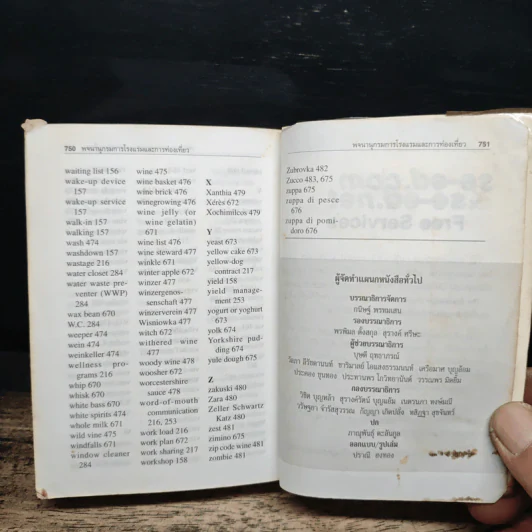 750 พจนานุกรมการโรงแรมและการท่องเที่ยว
waiting list 156
wake-up device
157
wake-up service
157
walk-in 157
walking 157
wash 474
washdown 157
wastage 216
water closet 284
water waste pre-
venter (WWP)
284
wax bean 670
W.C. 284
weeper 474
wein 474
weinkeller 474
wellness pro-
grams 216
whip 670
whisk 670
white bass 670
white spirits 474
whole milk 671
wild rise 475
windfalls 671
window cleaner
284
wine 475
wine basket 476
wine brick 476
winegrowing 476
wine jelly (or
wine gelatin)
671
wine list 476
wine steward 477
winkle 671
winter apple 672
winzer 477
winzergenos-
senschaft 477
winzerverein 477
Wisniowka 477
witch 672
withered wine
477
woody wine 478
woosher 672
worcestershire
sauce 478
word-of-mouth
communication
216, 253
work load 216
work plan 672
work sharing 217
workshop 158
X
Xanthia 479
Xérès 672
Xochimilcos 479
Y
yeast 673
yellow cake 673
yellow-dog
contract 217
yield 158
yield manage-
ment 253
yogurt or yoghurt
673
yolk 674
Yorkshire pud-
ding 674
yule dough 675
Z
zakuski 480
Zara 480
Zeller Schwartz
Katz 480
zest 481
zimino 675
zip code wine 481
zombie 481
พจนานุกรมการโรงแรมและการท่องเที่ยว 751
Zubrovka 482
Zucco 483, 675
zuppa 675
zuppa di pesce
676
zuppa di pomi-
doro 676
ผู้จัดทำแผนกหนังสือทั่วไป
บรรณาธิการจัดการ
กนิษฐ์ พรหมเสน
รองบรรณาธิการ
พรพิมล ตั้งสกุล สุรางค์ ศรีษะ
ผู้ช่วยบรรณาธิการ
บุษดี อุทธาภรณ์
กองบรรณาธิการ
ปก
ภาณุพันธุ์ ตะอันกูล
ออกแบบ/รูปเล่ม
ปราณี องอาจ